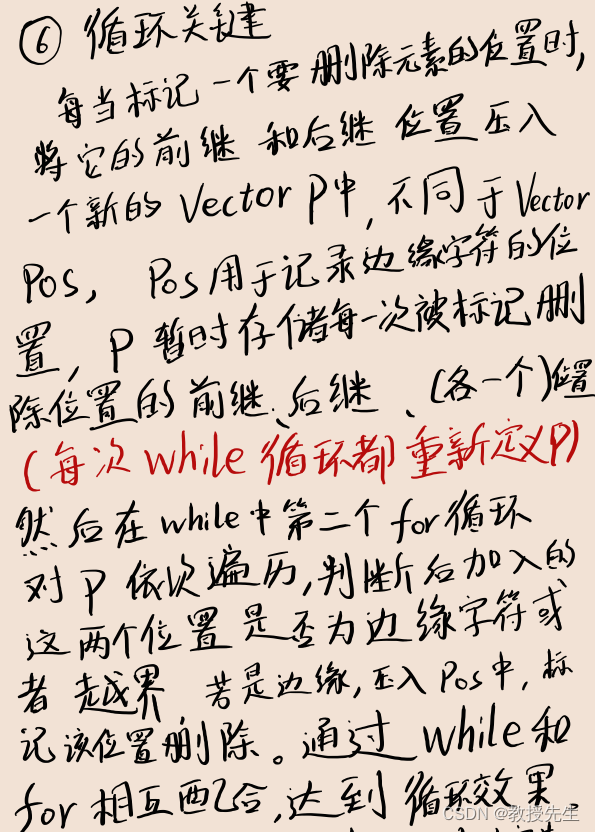 ⑥ 循环关键
每当标记一个要删除元素的位置时,
将它的前继和后继位置压入
一个新的 Vector P中, 不同于Vector
Pos, Pos用于记录边缘字符的位
置, P暂时存储每一次被标记删
除位置的前继、后继、(各一个)位置
(每次while循环都重新定义P)
然后在while中第二个for循环
对P依次遍历, 判断后加入的
这两个位置是否为边缘字符或
者越界, 若是边缘, 压入Pos中, 标
记该位置删除。通过while和
for相互配合, 达到循环效果.
CSDN @教授先生